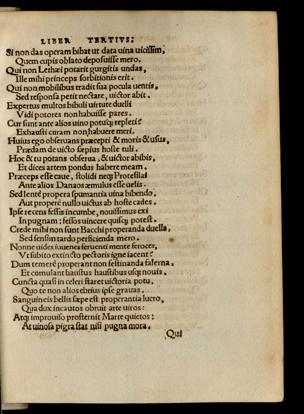 LIBER TERTIVS.
Si non das operam bibat ut data uina uicissim,
Quem cupis oblato deposuisse mero.
Qui non Lethæi potarit gurgitis undas,
Ille mihi princeps sorbitionis erit.
Qui non mobilibus tradit sua pocula uentis,
Sed responsa petit nectare, uictor abit.
Expertus multos bibuli uirtute duelli
Vidi potores non habuisse pares.
Cur sunt ante alios uino potuq; repleti?
Exhausti curam non habuere meri.
Huius ego obseruans præcepti & moris & usus,
Prædam de uicto sæpius hoste tuli.
Hoc & tu potans obserua, & uictor abibis,
Et dices artem pondus habere meam.
Præceps esse caue, stolidi neq; Protesilai
Ante alios Danaos æmulus esse uelis.
Sed lente propera spumantia uina bibendo,
Aut propere nullo uictus ab hoste cades.
Ipse recens fessis incumbe, nouissimus exi
In pugnam: fessos uincere quisq; potest.
Crede mihi non sunt Bacchi properanda duella,
Sed sensim tardo perficienda mero.
Nonne uides iuuenes feruenti mente feroces,
Vt subito extincto pectoris igne iacent?
Dum temere properant non festinanda falerna,
Et cumulant haustus haustibus usq; nouis.
Cuncta quasi in celeri staret uictoria potu,
Quo te non alios ebrius ipse grauas.
Sanguineis bellis sæpe est properantia lucro,
Qua dux incautos obruit arte uiros:
Atq; improuiso prosternit Marte quietos:
At uinosa pigra stat nisi pugna mora.
Qui